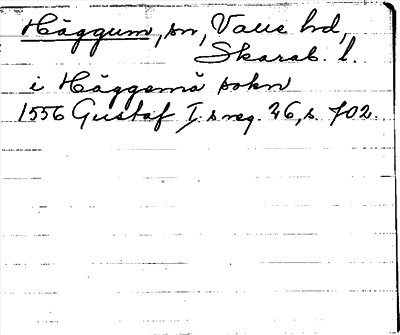 Häggum, sn, Valle hd,
Skarab. l.
i Häggemå sokn
1556 Gustaf I:s reg. 26, s. 702.